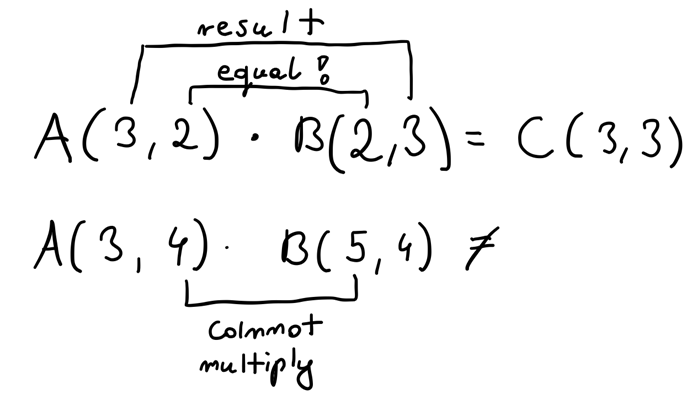 result
equal!
A(3,2) · B(2,3) = C(3,3)
A(3,4) · B(5,4) ≠
Cannot
multiply